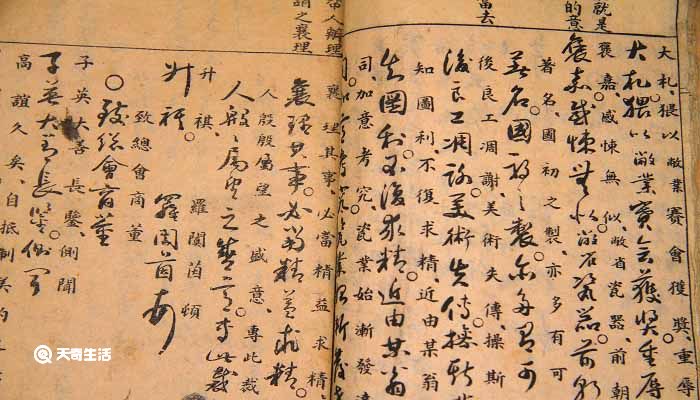 就是
的意
當去
大札猥以敝業賽會獲獎、重辱
大札猥以敝業賽會獲獎重辱
褒嘉。感悚無似。敝省瓷器、前朝
褒嘉感悚無似敝省瓷器前朝
著名、國初之製、亦多有可
著名國初之製亦多有可
後良工凋謝、美術失傳、操斯
後良工凋謝美術失傳操斯
知圖利、不復求精、近由某翁
知圖利不復求精近由某翁
司、加意考究、瓷業始漸發達
帝人辦理
謂之襄理
襄理其事、必當精益求精
襄理其事必當精益求精
人殷殷屬望之盛意、專此裁
人殷殷屬望之盛意專此裁
升祺、羅閬茵頓
升祺 羅閬茵頓
致總會商董
○致總會商董
子英大善長鑒側聞
子英大善長鑒側聞
高誼久矣、自抵制美約
天奇生活